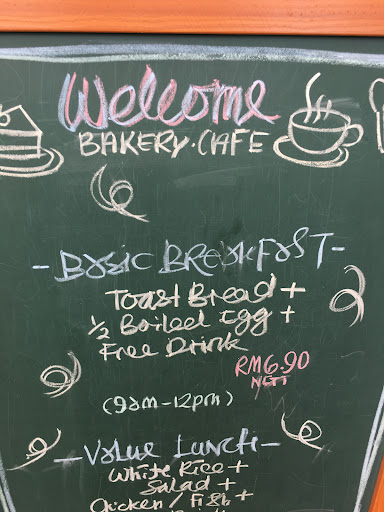 Welcome
BAKERY·CAFE
- BASIC BREAKFAST -
Toast Bread +
½ Boiled Egg +
Free Drink
RM6.90
NETT
(9am-12pm)
- Value Lunch -
White Rice +
Salad +
Chicken / Fish +